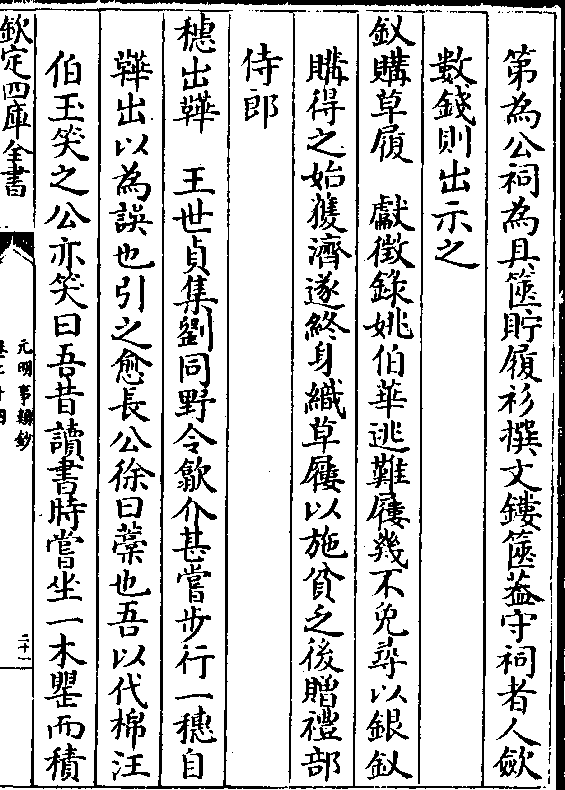 第為公祠為具篋貯履衫撰文鏤篋葢守祠者人斂
數錢則出示之
釵購草履　獻徵錄姚伯華逃難屨幾不免尋以銀釵
購得之始獲濟遂終身織草屨以施貧乏後贈禮部
侍郎
穗出鞾　王世貞集劉同野令歙介甚嘗步行一穗自
鞾出以為誤也引之愈長公徐曰藁也吾以代棉汪
伯玉笑之公亦笑曰吾昔讀書時嘗坐一木罌而積
欽定四庫全書
元明事類鈔
二十一